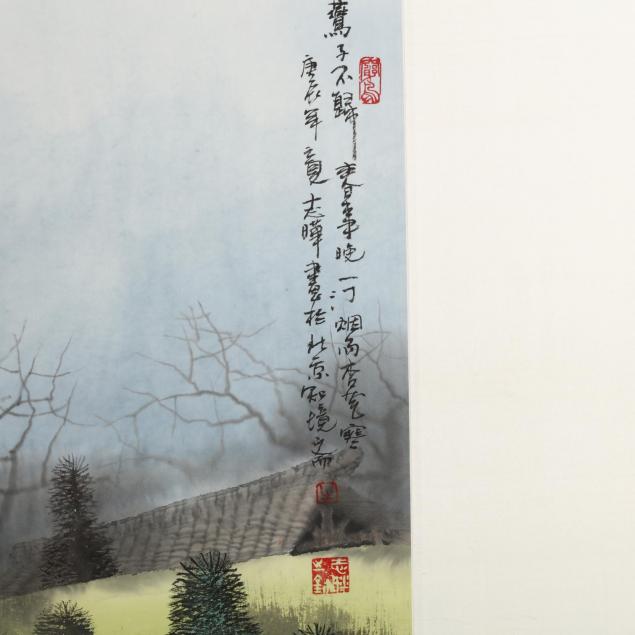 鶯子不歸春事晚一汀烟雨杏花寒
庚辰年夏志曄畫於北京知境之斋